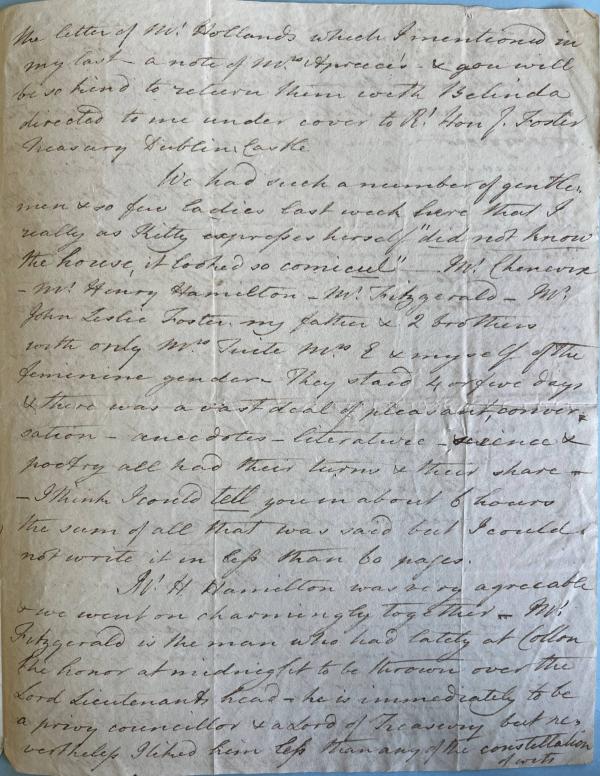 the letter of Mr. Hollands which I mentioned in
my last – a note of Mrs. Apreece's – & you will
be so kind to return them with Belinda
directed to me under cover to Rt. Hon J. Foster
Treasury Dublin Castle
We had such a number of gentle-
men & so few ladies last week here that I
really as Kitty expresses herself "did not know
the house, it looked so comicul" – Mr. Chenevix
– Mr. Henry Hamilton – Mr. Fitzgerald – Mr.
John Leslie Foster my father & 2 brothers
with only Mrs. Tuite Mrs E & myself of the
femenine gender – They staid 4 or five days
& there was a vast deal of pleasant conver-
sation – anecdotes – literature – science &
poetry all had their turns & their share –
– I think I could tell you in about 6 hours
the sum of all that was said but I could
not write it in less than 60 pages.
Mr. H Hamilton was very agreeable
& we went on charmingly together – Mr.
Fitzgerald is the man who had lately at Collon
the honor at midnight to be thrown over the
Lord Lieutenants head – he is immediately to be
a privy councillor & a Lord of Treasury but ne-
vertheless I liked him less than any of the constellation
of wits